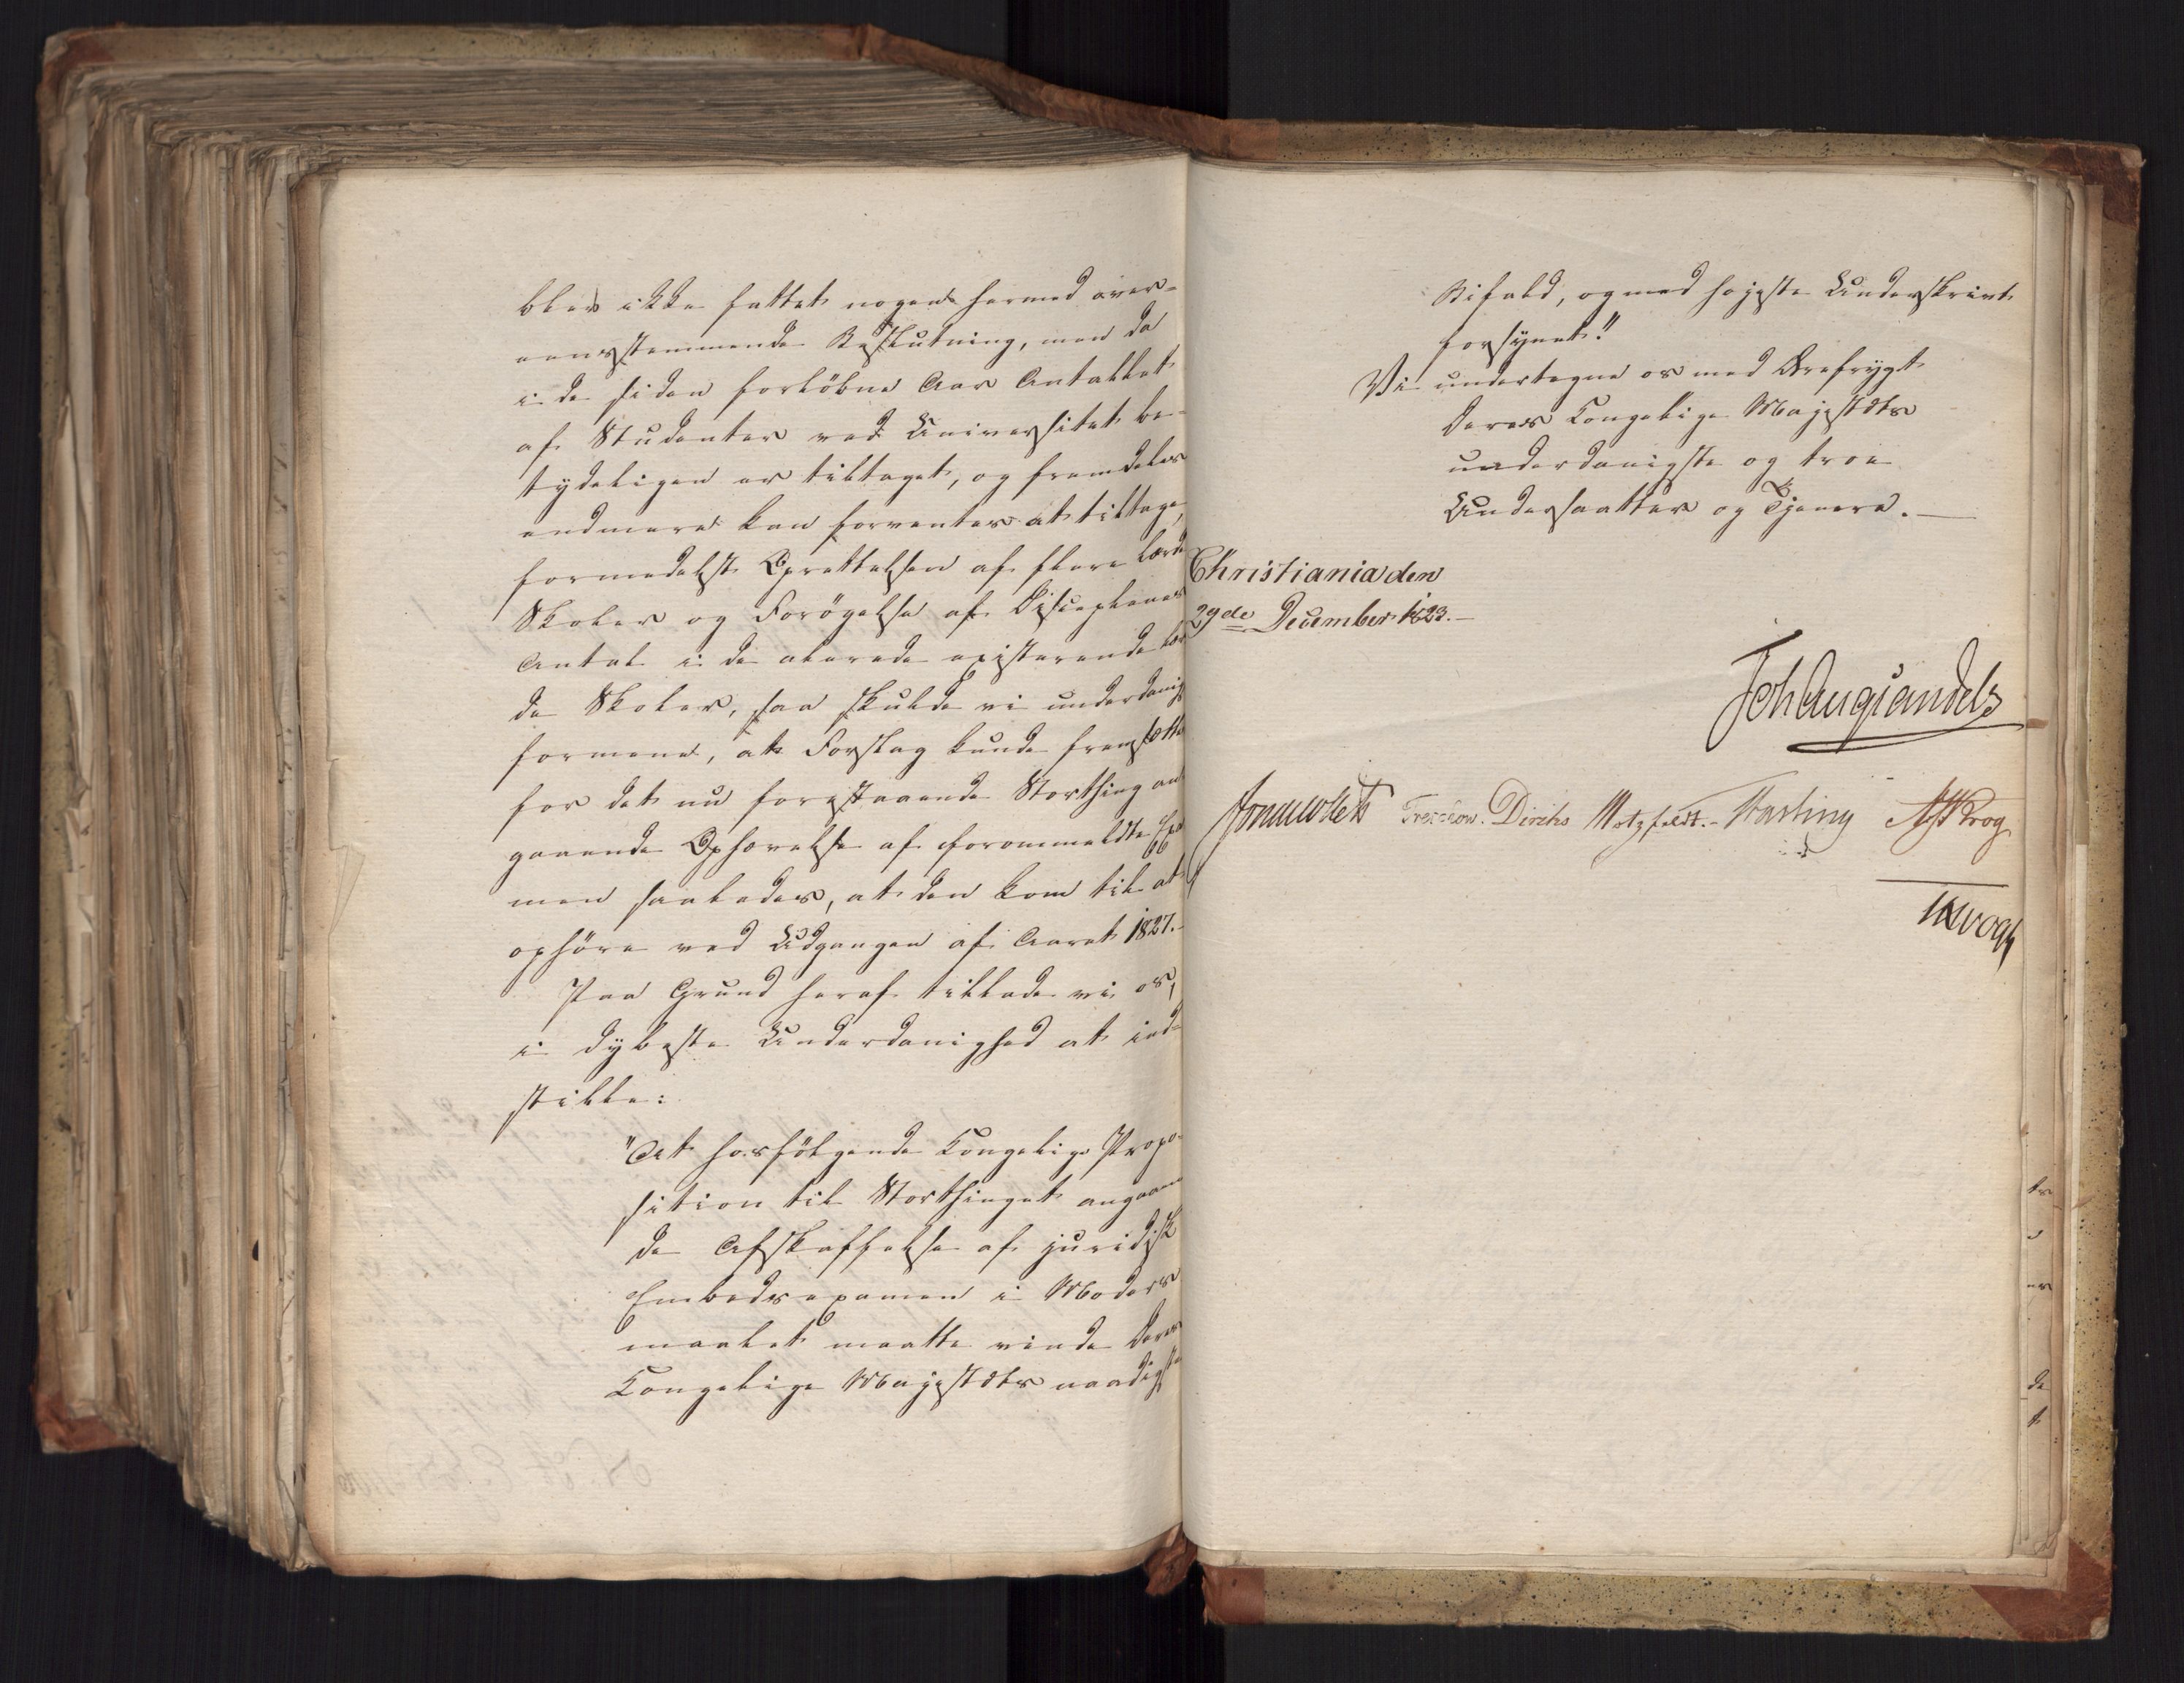 blev ikke fattet nogen hermed over-
eensstemmende Beslutning, men da
i de siden forløbne Aar Antallet
af Studenter ved Universitet be-
tydeligen er tiltaget, og fremdeles
endmere kan forventes at tiltage,
formedelst Oprettelsen af flere lærde
Skoler og Forøgelse af Disciplenes
Antal i de allerede existerende lær
de Skoler, saa skulde vi underdanigst
formene, at Forslag kunde fremsættes
for det nu forestaaende Storthing an-
gaaende Ophævelse af forommeldte Exa
men saaledes, at den kom til at
ophöre ved Udgangen af Aaret 1827.-
Paa Grund heraf tillade vi os,
i dybeste Underdanighed at ind-
stille:
"At hosfölgende Kongelige Propo-
sition til Storthinget angaaen
de Afskaffelse af juridisk
Embedsexamen i Moders
maalet maatte vinde Deres
Kongelige Majestæts naadigste
Bifald, og med højeste Underskrivt
forsynet."
Vi undertegne os med Ærefrygt
Deres Kongelige Majestæts
underdanigste og troe
Undersaatter og Tjenere.—
Christiania den
29de December 1823.—
Joh Aug Sandels
Jonas Collett Treschow. Diriks Motzfeldt.- Fasting Krog
Vogt